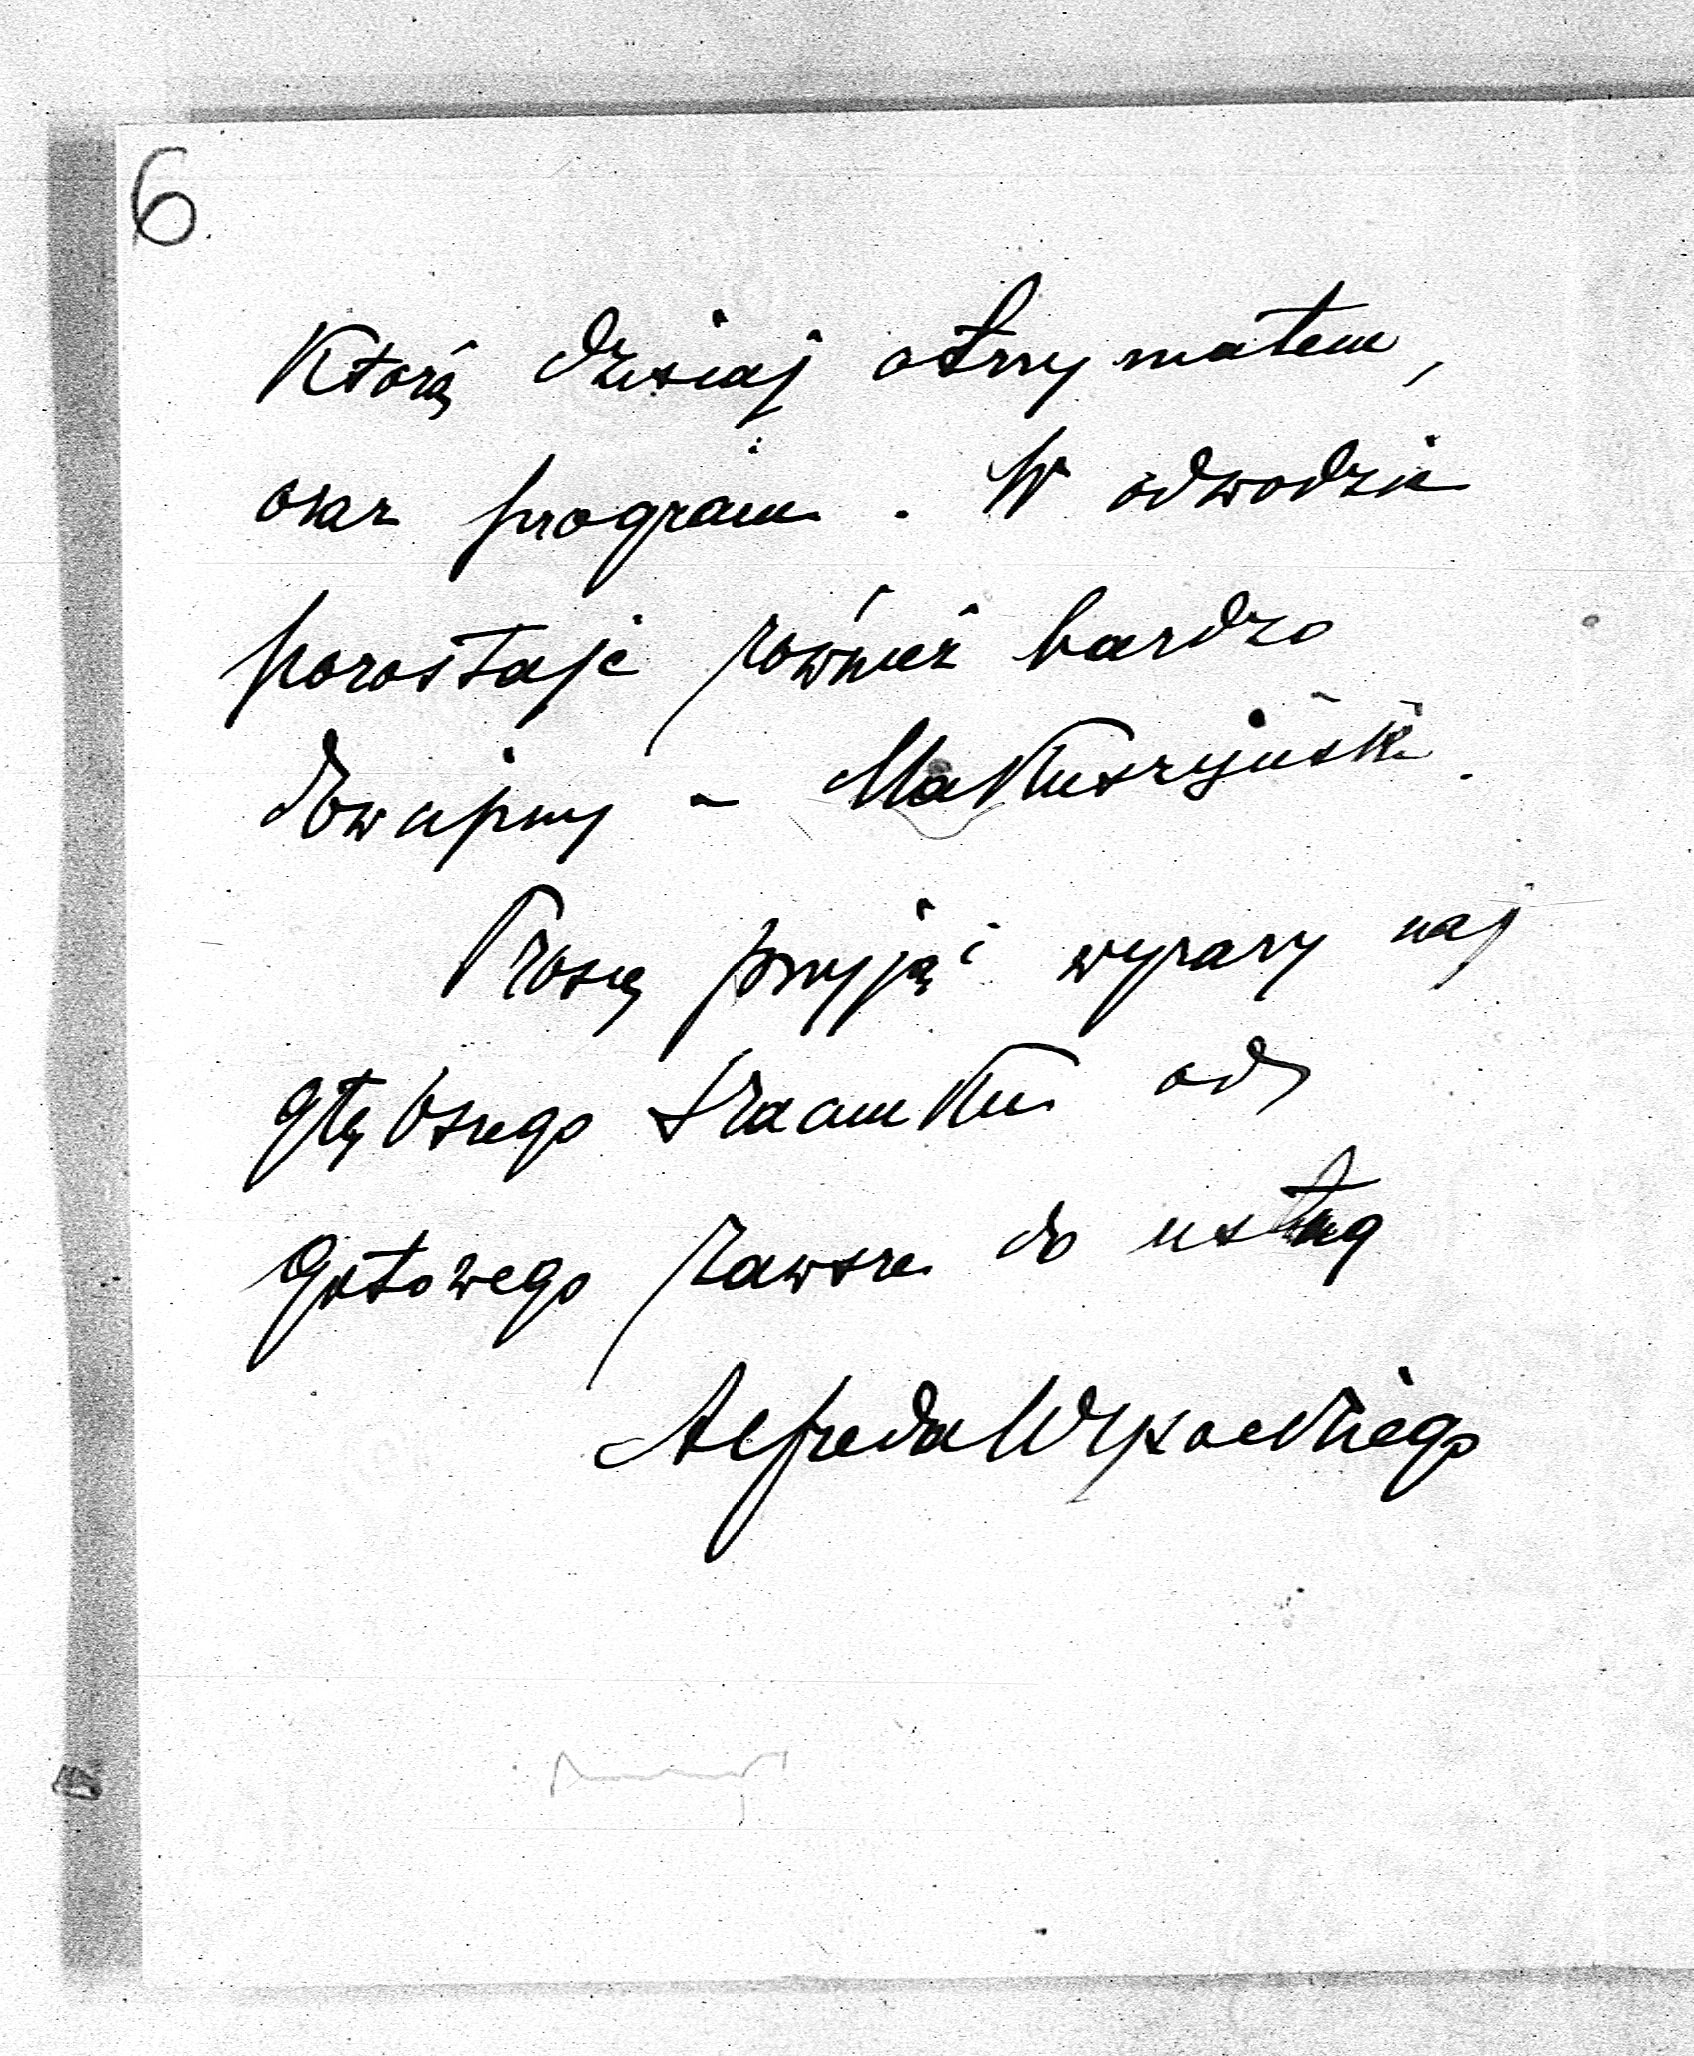 6.
którą dzisiaj otrzymałem,
oraz program. W odwodzie
pozostaje również bardzo
dowcipny - Makuszyński.
Proszę przyjąć wyrazy naj
głębszego szacunku od
gotowego zawsze do usług
Alfreda Wysockiego